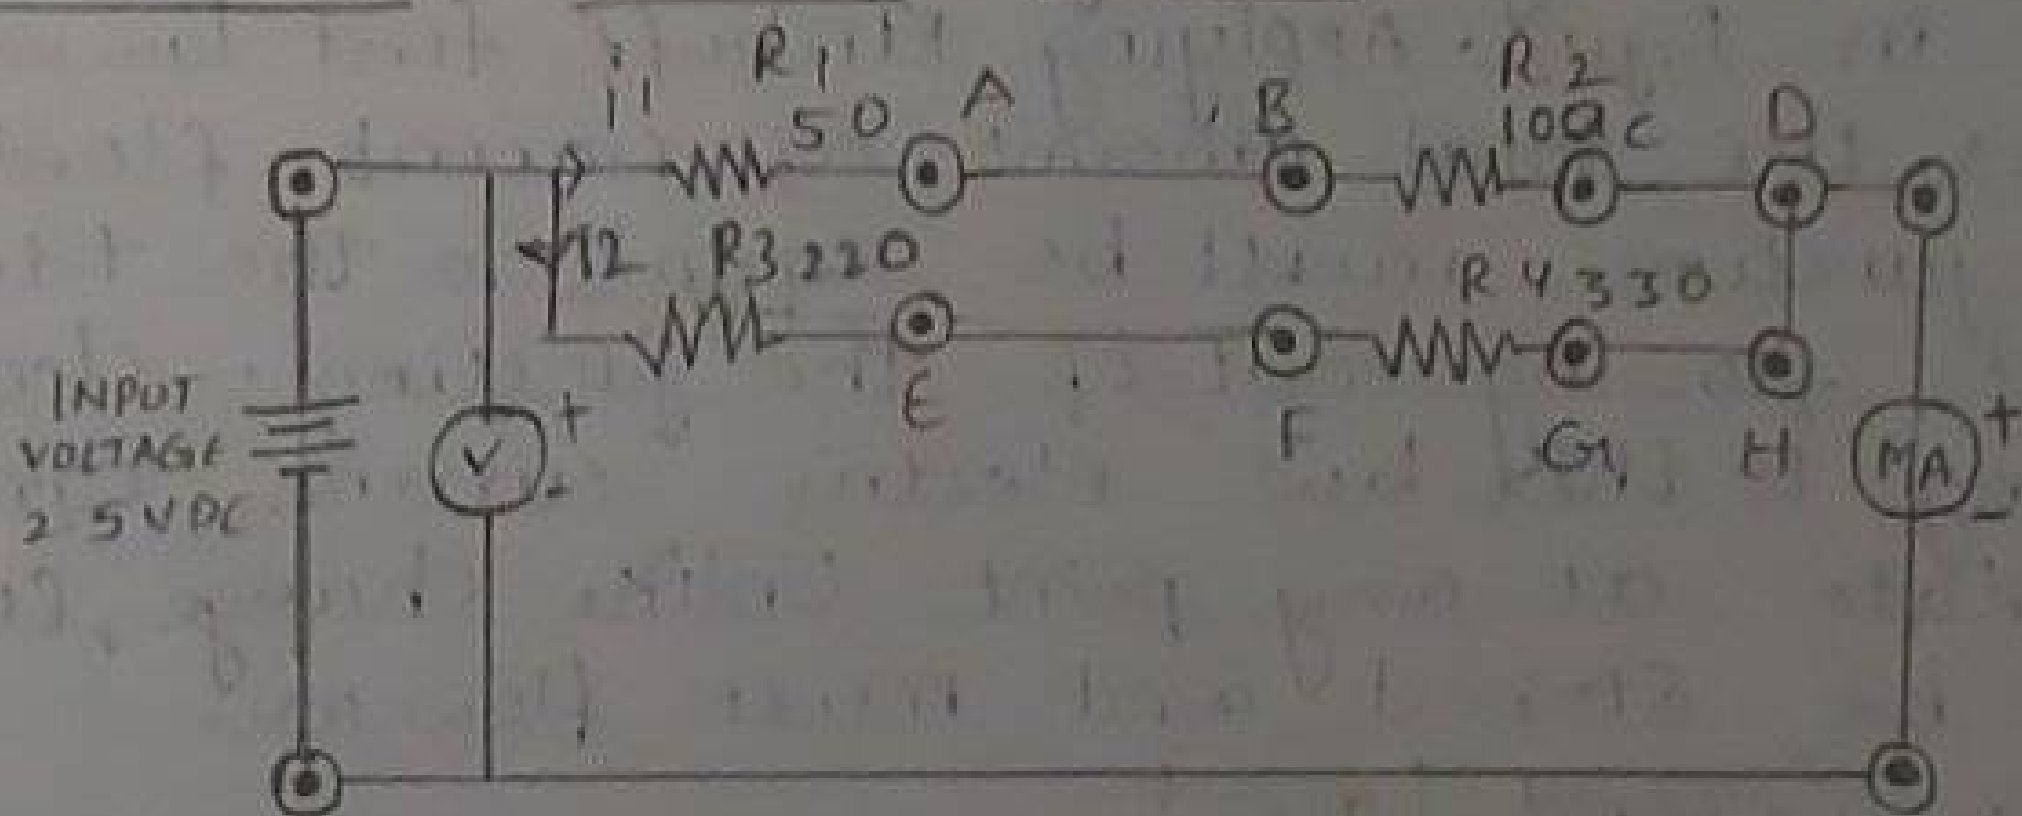 i1
R1
50
A
B
R2
100
C
D
I2
R3 220
E
F
R4 330
G
H
INPUT
VOLTAGE
2 5 V DC
V
+
-
MA
+
-